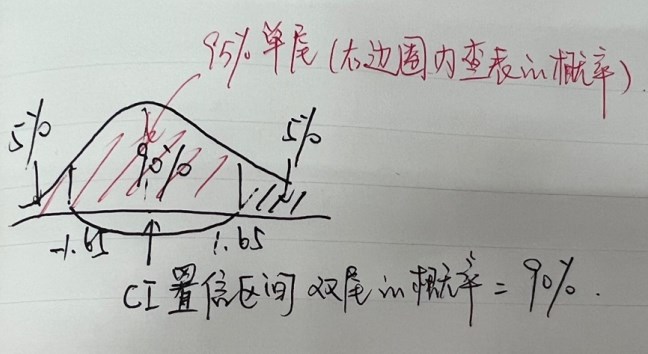 95% 单尾 (右边图内查表的概率)
5%
90%
5%
-1.65
1.65
CI 置信区间 双尾的概率 = 90%.